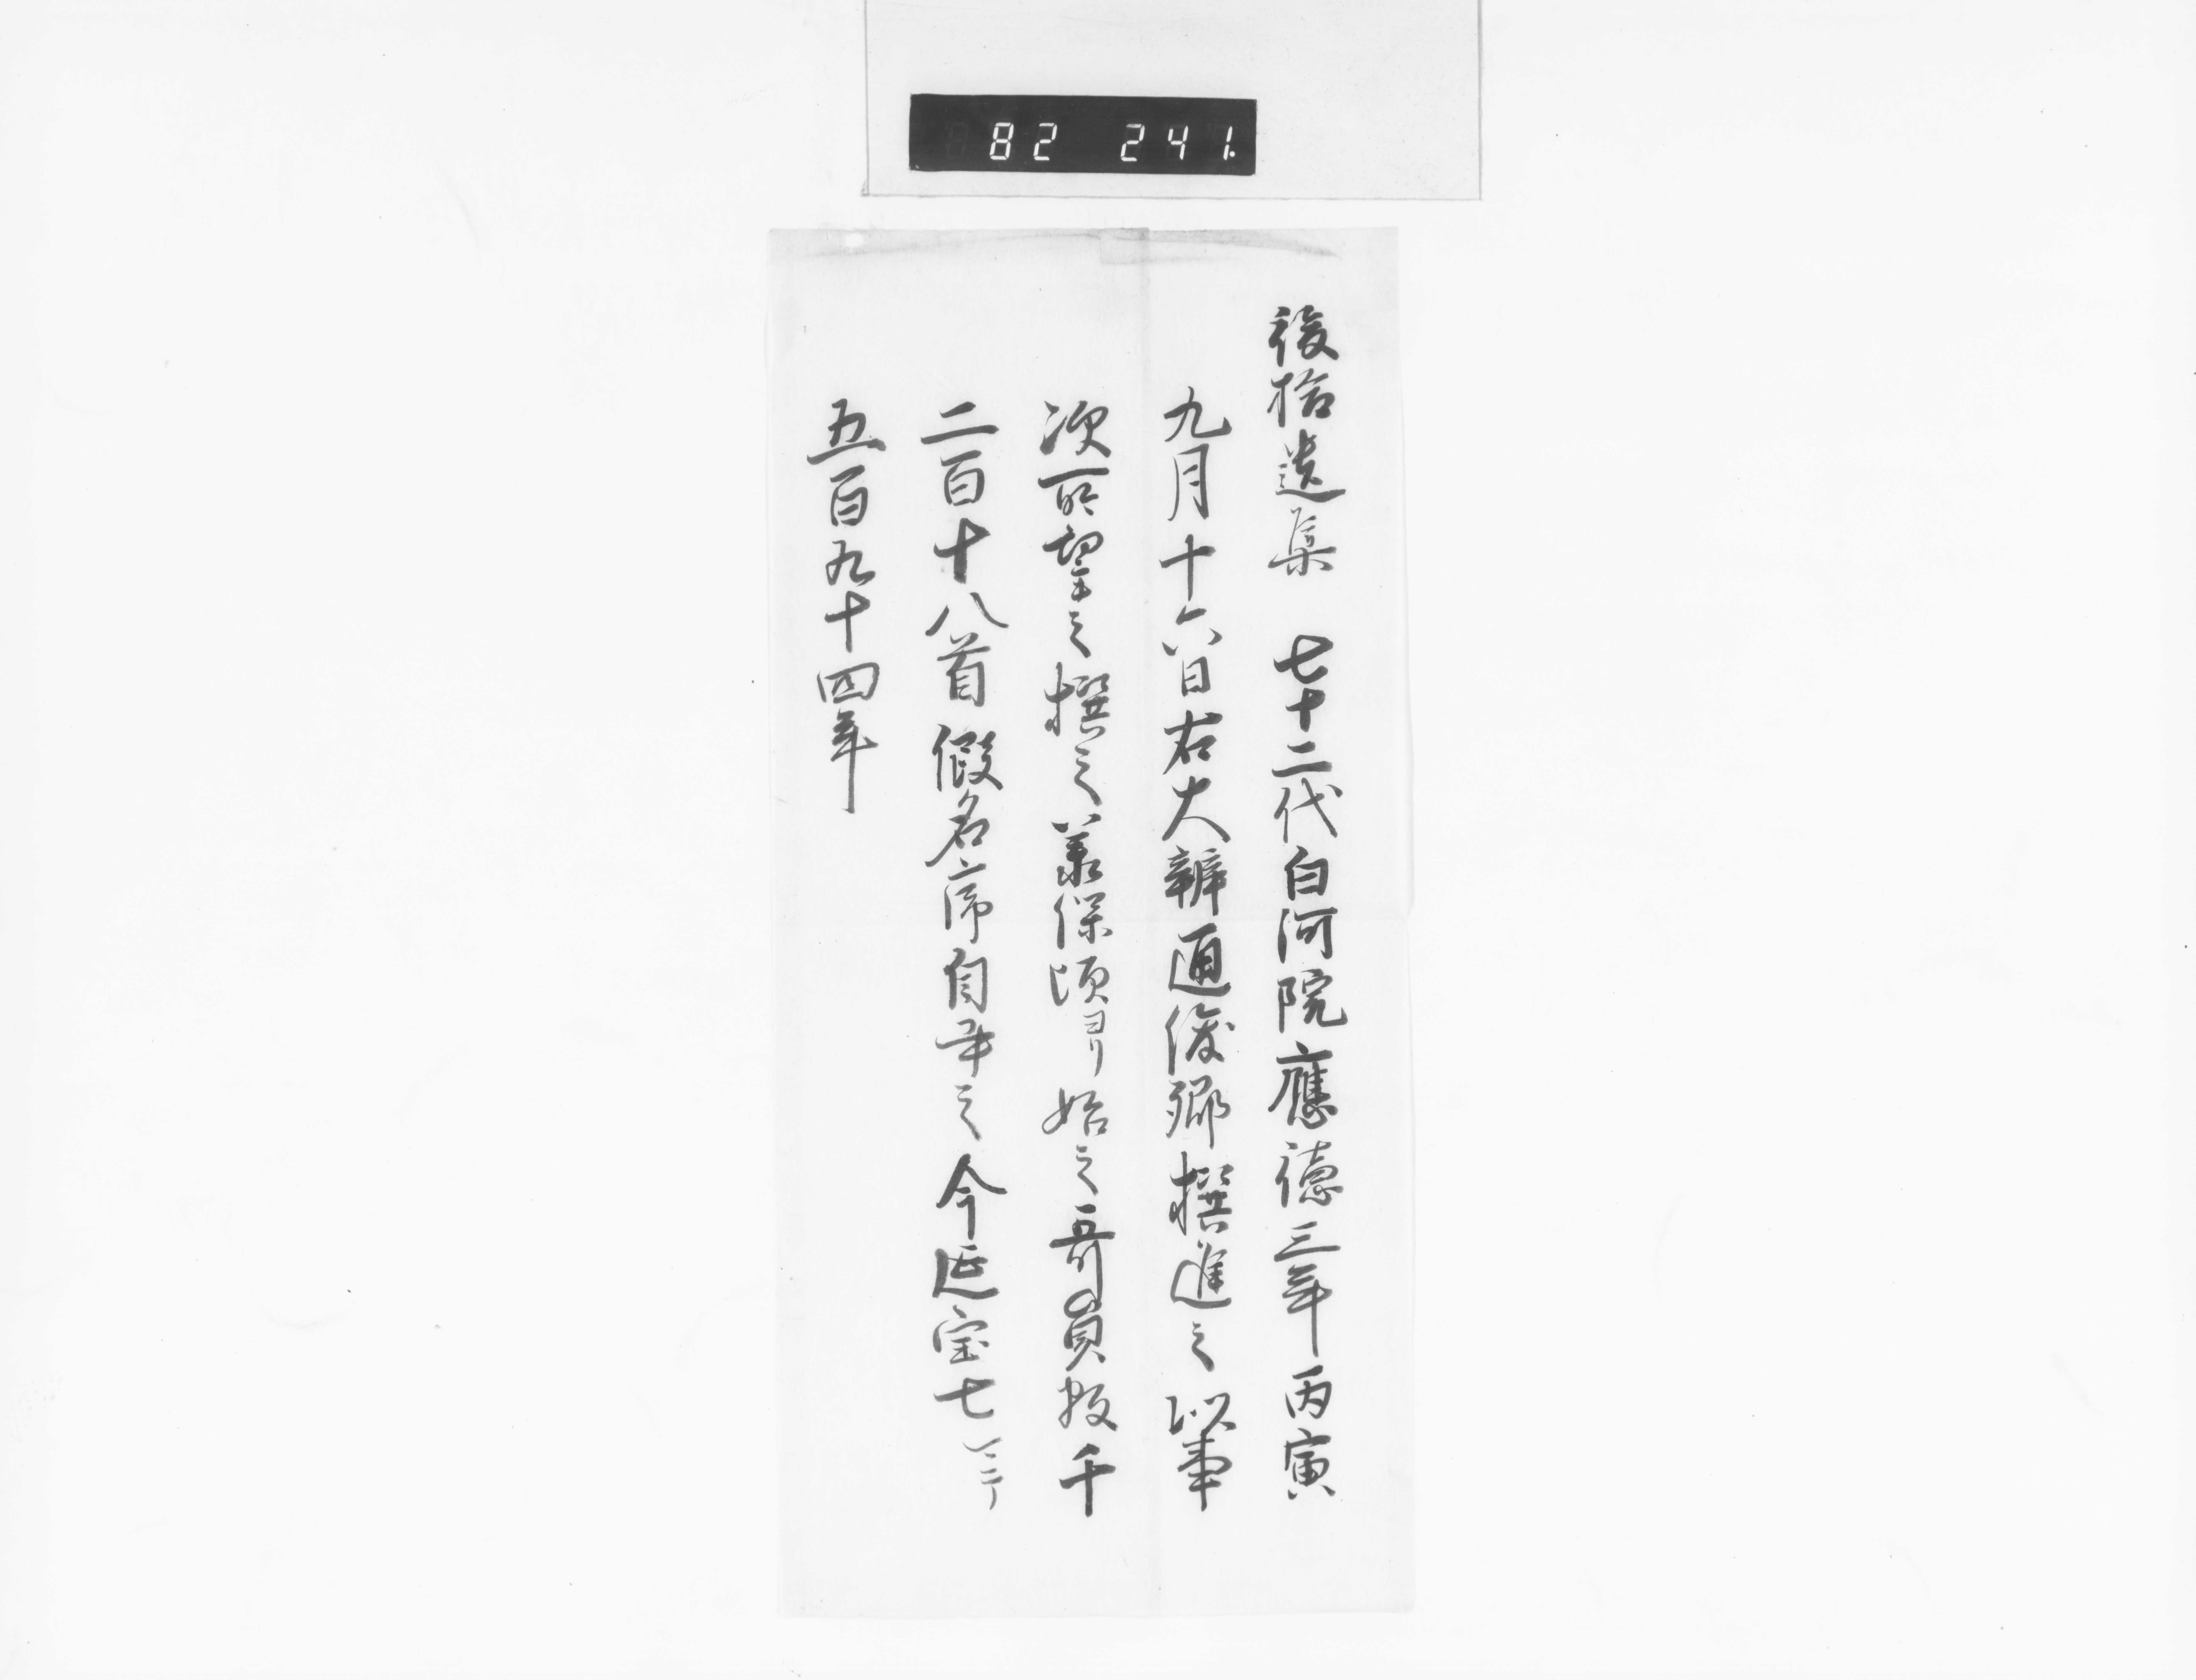 82 241.
後拾遺集 七十二代白河院應徳三年丙寅
九月十六日右大辨通俊卿撰進之以事
次所望之撰之義保頃ヨリ始之哥員数千
二百十八首假名序自筆之今延宝七マテ
五百九十四年